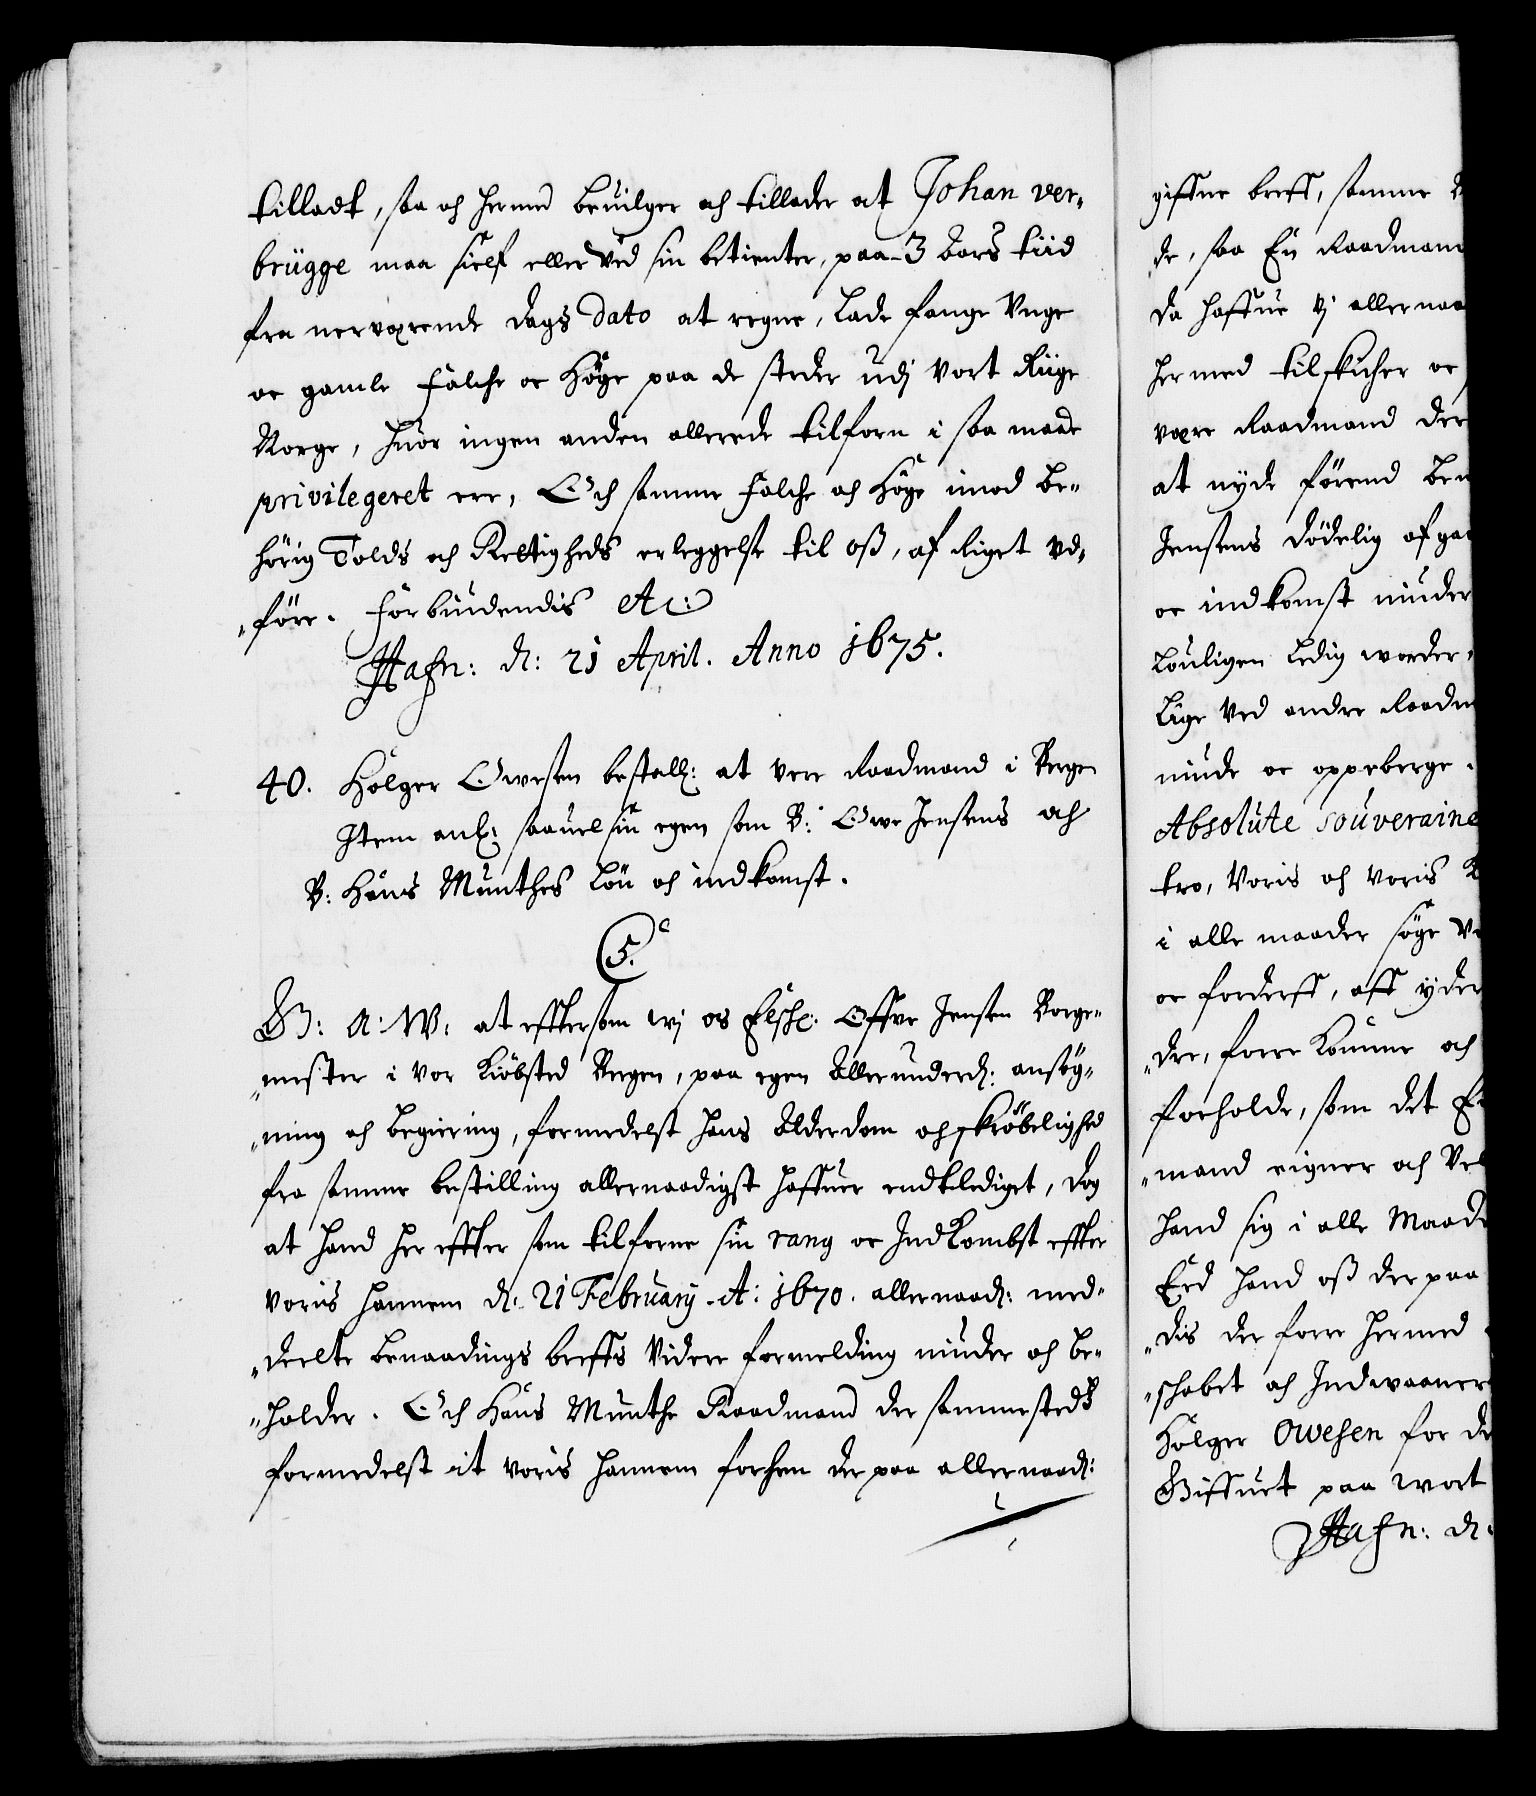 tilladt, saa och hermed beuilger och tillader at Johan ver-
brügge maa sielf eller ved sin betienter, paa 3 Aars tiid
fra nerværende dags dato at regne, lade fange Vnge
oc gamle Falche oc Höge paa de steder udj vort Riige
Norge, huor ingen anden allerede tilforn i saa maade
privilegeret ere, Och samme Falche och Höge imod be-
hörig Tolds och Rettigheds erleggelse til oß, af Riget vd-
"före. Forbiudendis etc:
Hafn: d: 21 April. Anno 1675.
40. Holger Owesen bestall: at vere Raadmand i Bergen
Item anl: saauel sin egen som B: Owe Jensens och
B: Hans Munthes Lön och indkomst.
C 5.
G: A: W: at effter som wj os Elsch: Offve Jensen Borge-
"mester i vor Kiöbsted Bergen, paa egen Allerunderd: ansög-
"ning och begiering, formedelst hans Alderdom och skröbelighed
fra samme bestilling allernaadigst haffuer endtlediget, dog
at hand her effter som tilforne sin rang oc Indkombst effter
voris hannem d: 21 February A: 1670. allernaad: med-
"deelte benaadings breffs videre formelding niuder och be-
"holder. Och Hans Munthe Raadmand der sammesteds
formedelst it voris hannem forhen der paa allernaad:
giffne breff, samme
de, saa En Raadmand
da haffue Vj allernaa
hermed tilskicker oc
være Raadmand der
at nyde förend be
Jensens dödelig afga
oc indkomst niuder
Louligen Ledig worder,
Lige ved andre Raadm
niude oc oppeberge.
Absolute souveraine
tro, voris och voris
i alle maader söge
oc forderff, aff yder
"dre, forre komme och
forholde, som det
"mand eigner och Vel
hand sig i alle Maade
Eed hand oß der paa
"dis der forre hermed
"skabet och Indwaaner
Holger Owesen for de
Giffuet paa wort
Hafn: d: